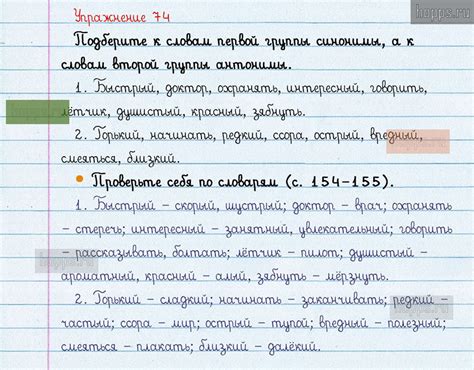 hopps.ru
Упражнение 74
Подберите к словам первой группы синонимы, а к
словам второй группы антонимы.
1. Быстрый, доктор, охранять, интересный, говорить,
лётчик, душистый, красный, зябнуть.
2. Горький, начинать, редкий, ссора, острый, вредный,
смеяться, близкий.
Проверьте себя по словарям (с. 154-155).
1. Быстрый – скорый, шустрый; доктор – врач; охранять
– стеречь; интересный – занятный, увлекательный; говорить
– рассказывать, болтать; лётчик – пилот; душистый –
ароматный, красный – алый, зябнуть – мёрзнуть.
2. Горький – сладкий; начинать – заканчивать; редкий –
частый; ссора – мир; острый – тупой; вредный – полезный;
смеяться – плакать; близкий – далёкий.